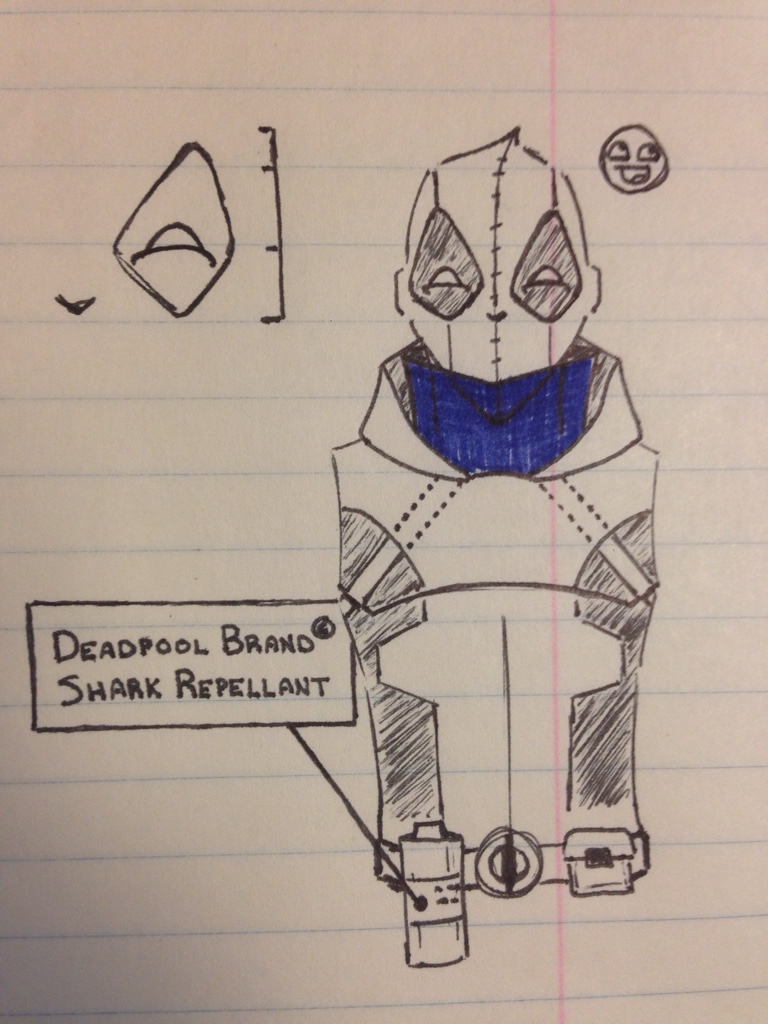 DEADPOOL BRAND©
SHARK REPELLANT